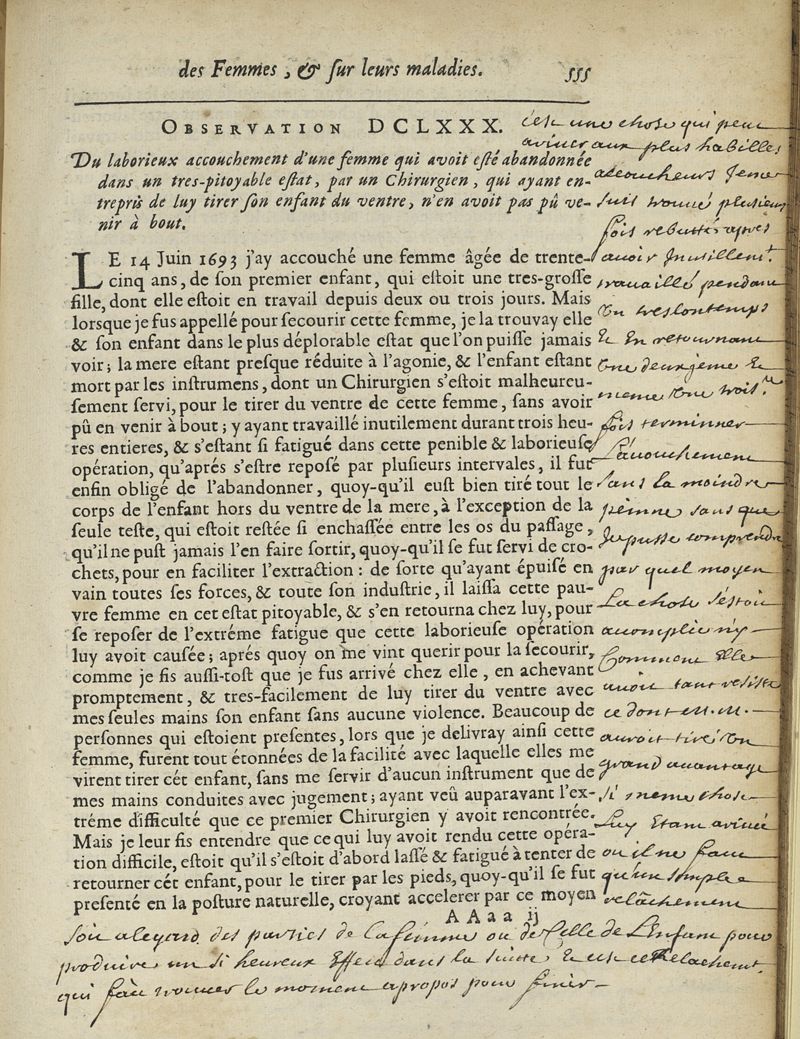 des Femmes, & sur leurs maladies. 555
OBSERVATION DCLXXX.
Du laborieux accouchement d'une femme qui avoit esté abandonnée
dans un tres-pitoyable estat, par un Chirurgien, qui ayant en-
trepris de luy tirer son enfant du ventre, n'en avoit pas pû ve-
nir à bout.
LE 14 Juin 1693 j'ay accouché une femme âgée de trente-
cinq ans, de son premier enfant, qui estoit une tres-grosse
fille, dont elle estoit en travail depuis deux ou trois jours. Mais
lorsque je fus appellé pour secourir cette femme, je la trouvay elle
& son enfant dans le plus déplorable estat que l'on puisse jamais
voir; la mere estant presque réduite à l'agonie, & l'enfant estant
mort par les instrumens, dont un Chirurgien s'estoit malheureu-
sement servi, pour le tirer du ventre de cette femme, sans avoir
pû en venir à bout; y ayant travaillé inutilement durant trois heu-
res entieres, & s'estant si fatigué dans cette penible & laborieuse
opération, qu'aprés s'estre reposé par plusieurs intervales, il fut
enfin obligé de l'abandonner, quoy-qu'il eust bien tiré tout le
corps de l'enfant hors du ventre de la mere, à l'exception de la
seule teste, qui estoit restée si enchassée entre les os du passage,
qu'il ne pust jamais l'en faire sortir, quoy-qu'il se fut servi de cro-
chets, pour en faciliter l'extraction: de sorte qu'ayant épuisé en
vain toutes ses forces, & toute son industrie, il laissa cette pau-
vre femme en cet estat pitoyable, & s'en retourna chez luy, pour
se reposer de l'extréme fatigue que cette laborieuse opération
luy avoit causée; aprés quoy on me vint querir pour la secourir,
comme je fis aussi-tost que je fus arrivé chez elle, en achevant
promptement, & tres-facilement de luy tirer du ventre avec
mes seules mains son enfant sans aucune violence. Beaucoup de
personnes qui estoient presentes, lors que je delivray ainsi cette
femme, furent tout étonnées de la facilité avec laquelle elles me
virent tirer cét enfant, sans me servir d'aucun instrument que de
mes mains conduites avec jugement; ayant veû auparavant l'ex-
tréme difficulté que ce premier Chirurgien y avoit rencontrée.
Mais je leur fis entendre que ce qui luy avoit rendu cette opera-
tion difficile, estoit qu'il s'estoit d'abord lassé & fatigué à tenter de
retourner cét enfant, pour le tirer par les pieds, quoy-qu'il se fut
presenté en la posture naturelle, croyant accelerer par ce moyen
AAaa ij
cest une chose qui peut
ariver aux plus habilles
acoucheurs Je me
suis trouué plusieurs
fois rebutté apres
auoir Inutillemt.
trauaillé pendant
Un tres lontemps
Et En retournant
Une deuxieme Et
meme Une trois.me
fois terminner
L'acouchement
sans la moindre
peinne sans que
Je pusse comprendre
par quel moyen
La chose s'estoit
acomplie n'y
Comment Elle
auoit tant resisté
ce dont
auroit tiré Un
grand auantage
si meme chose
Luy Etant arivée
ou il ne faut
qu'un simple
relâchement
soit a legard des parties de la femme ou de celle de L'enfant pour
produire un si heureux Effect dans la suitte Et cest ce Relachemt.
qui fait trouuer le moment apropos pour finir.